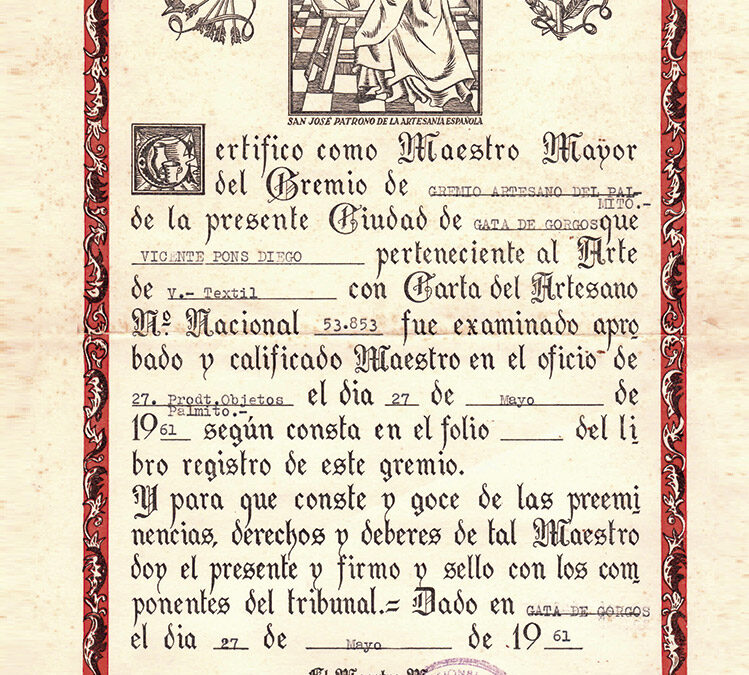 SAN JOSÉ PATRONO DE LA ARTESANIA ESPAÑOLA
Certifico como Maestro Mayor
del Gremio de GREMIO ARTESANO DEL PAL-
MITO.-
de la presente Ciudad de GATA DE GORGOS que
VICENTE PONS DIEGO perteneciente al Arte
de V.- Textil con Carta del Artesano
N.º Nacional 53.853 fue examinado apro
bado y calificado Maestro en el oficio de
27. Prodt.Objetos el dia 27 de Mayo de
Palmito.-
1961 según consta en el folio ____ del li
bro registro de este gremio.
Y para que conste y goce de las preemi
nencias, derechos y deberes de tal Maestro
doy el presente y firmo y sello con los com
ponentes del tribunal.= Dado en GATA DE GORGOS
el dia 27 de Mayo de 1961
El Maestro